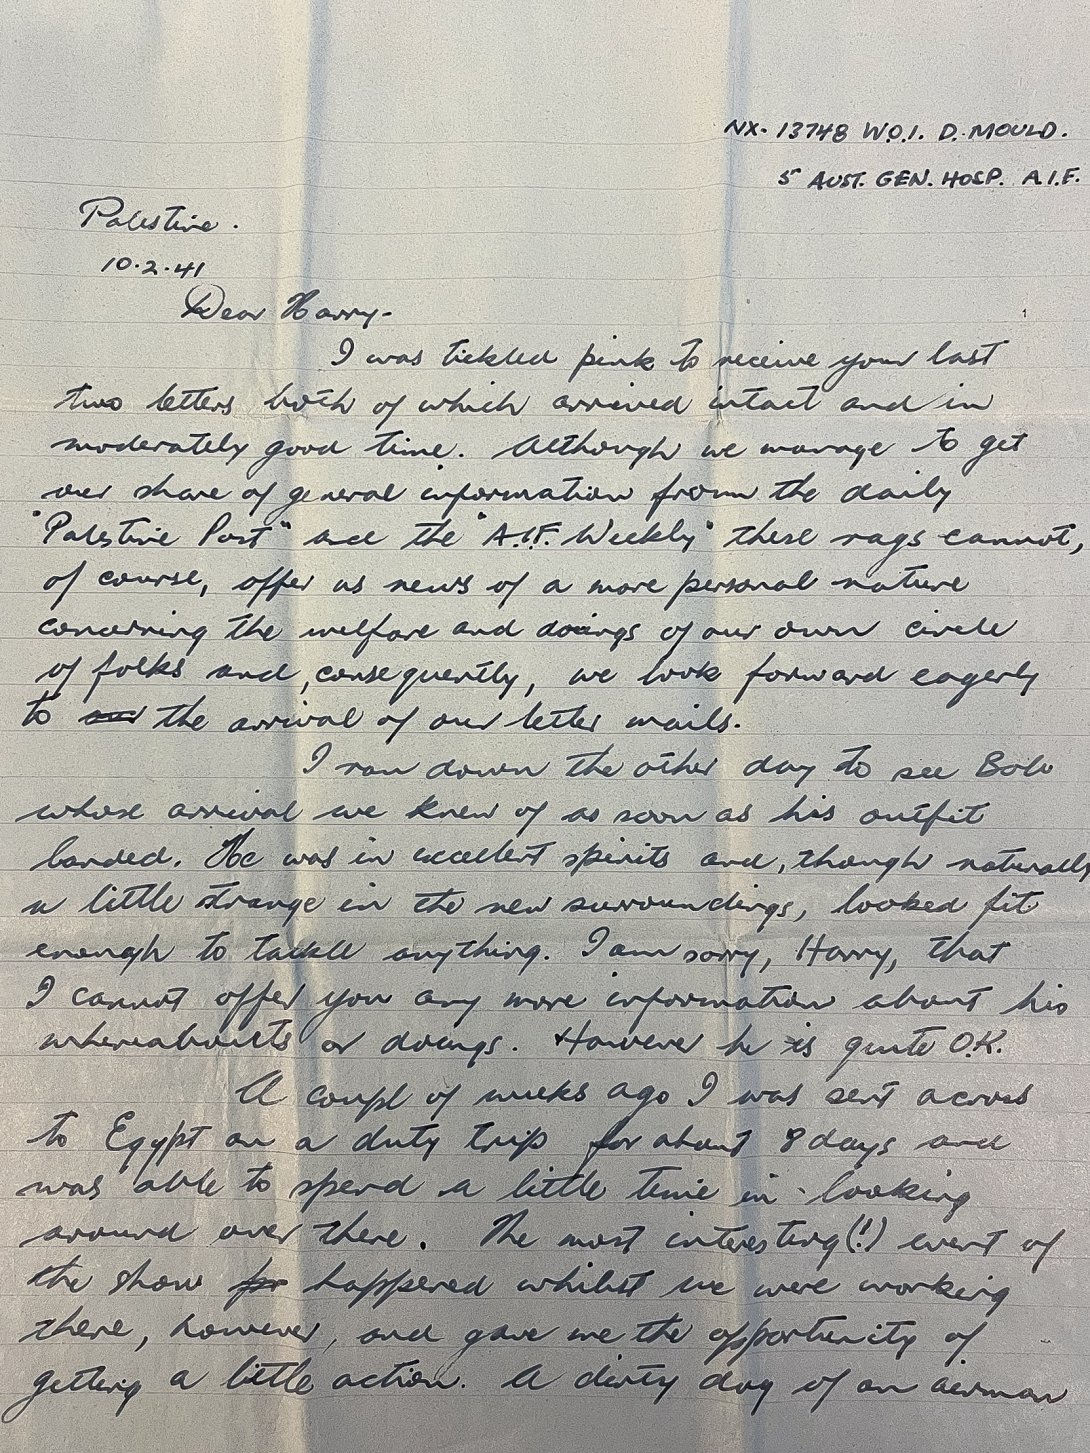 NX-13748 W.O.1. D. MOULD.
5 AUST. GEN. HOSP. A.I.F.
Palestine.
10.2.41
Dear Harry-
I was tickled pink to receive your last
two letters both of which arrived intact and in
moderately good time. Although we manage to get
our share of general information from the daily
"Palestine Post" and the "A.I.F. Weekly" these rags cannot,
of course, offer us news of a more personal nature
concerning the welfare and doings of our own circle
of folks and, consequently, we look forward eagerly
to our the arrival of our letter mails.
I ran down the other day to see Bob
whose arrival we knew of as soon as his outfit
landed. He was in excellent spirits and, though naturally
a little strange in the new surroundings, looked fit
enough to tackle anything. I am sorry, Harry, that
I cannot offer you any more information about his
whereabouts or doings. However he is quite O.K.
A coupl of weeks ago I was sent across
to Egypt on a duty trip for about 8 days and
was able to spend a little time in looking
around over there. The most interesting(!) event of
the show for happened whilst we were working
there, however, and gave me the opportunity of
getting a little action. A dirty dog of an airman